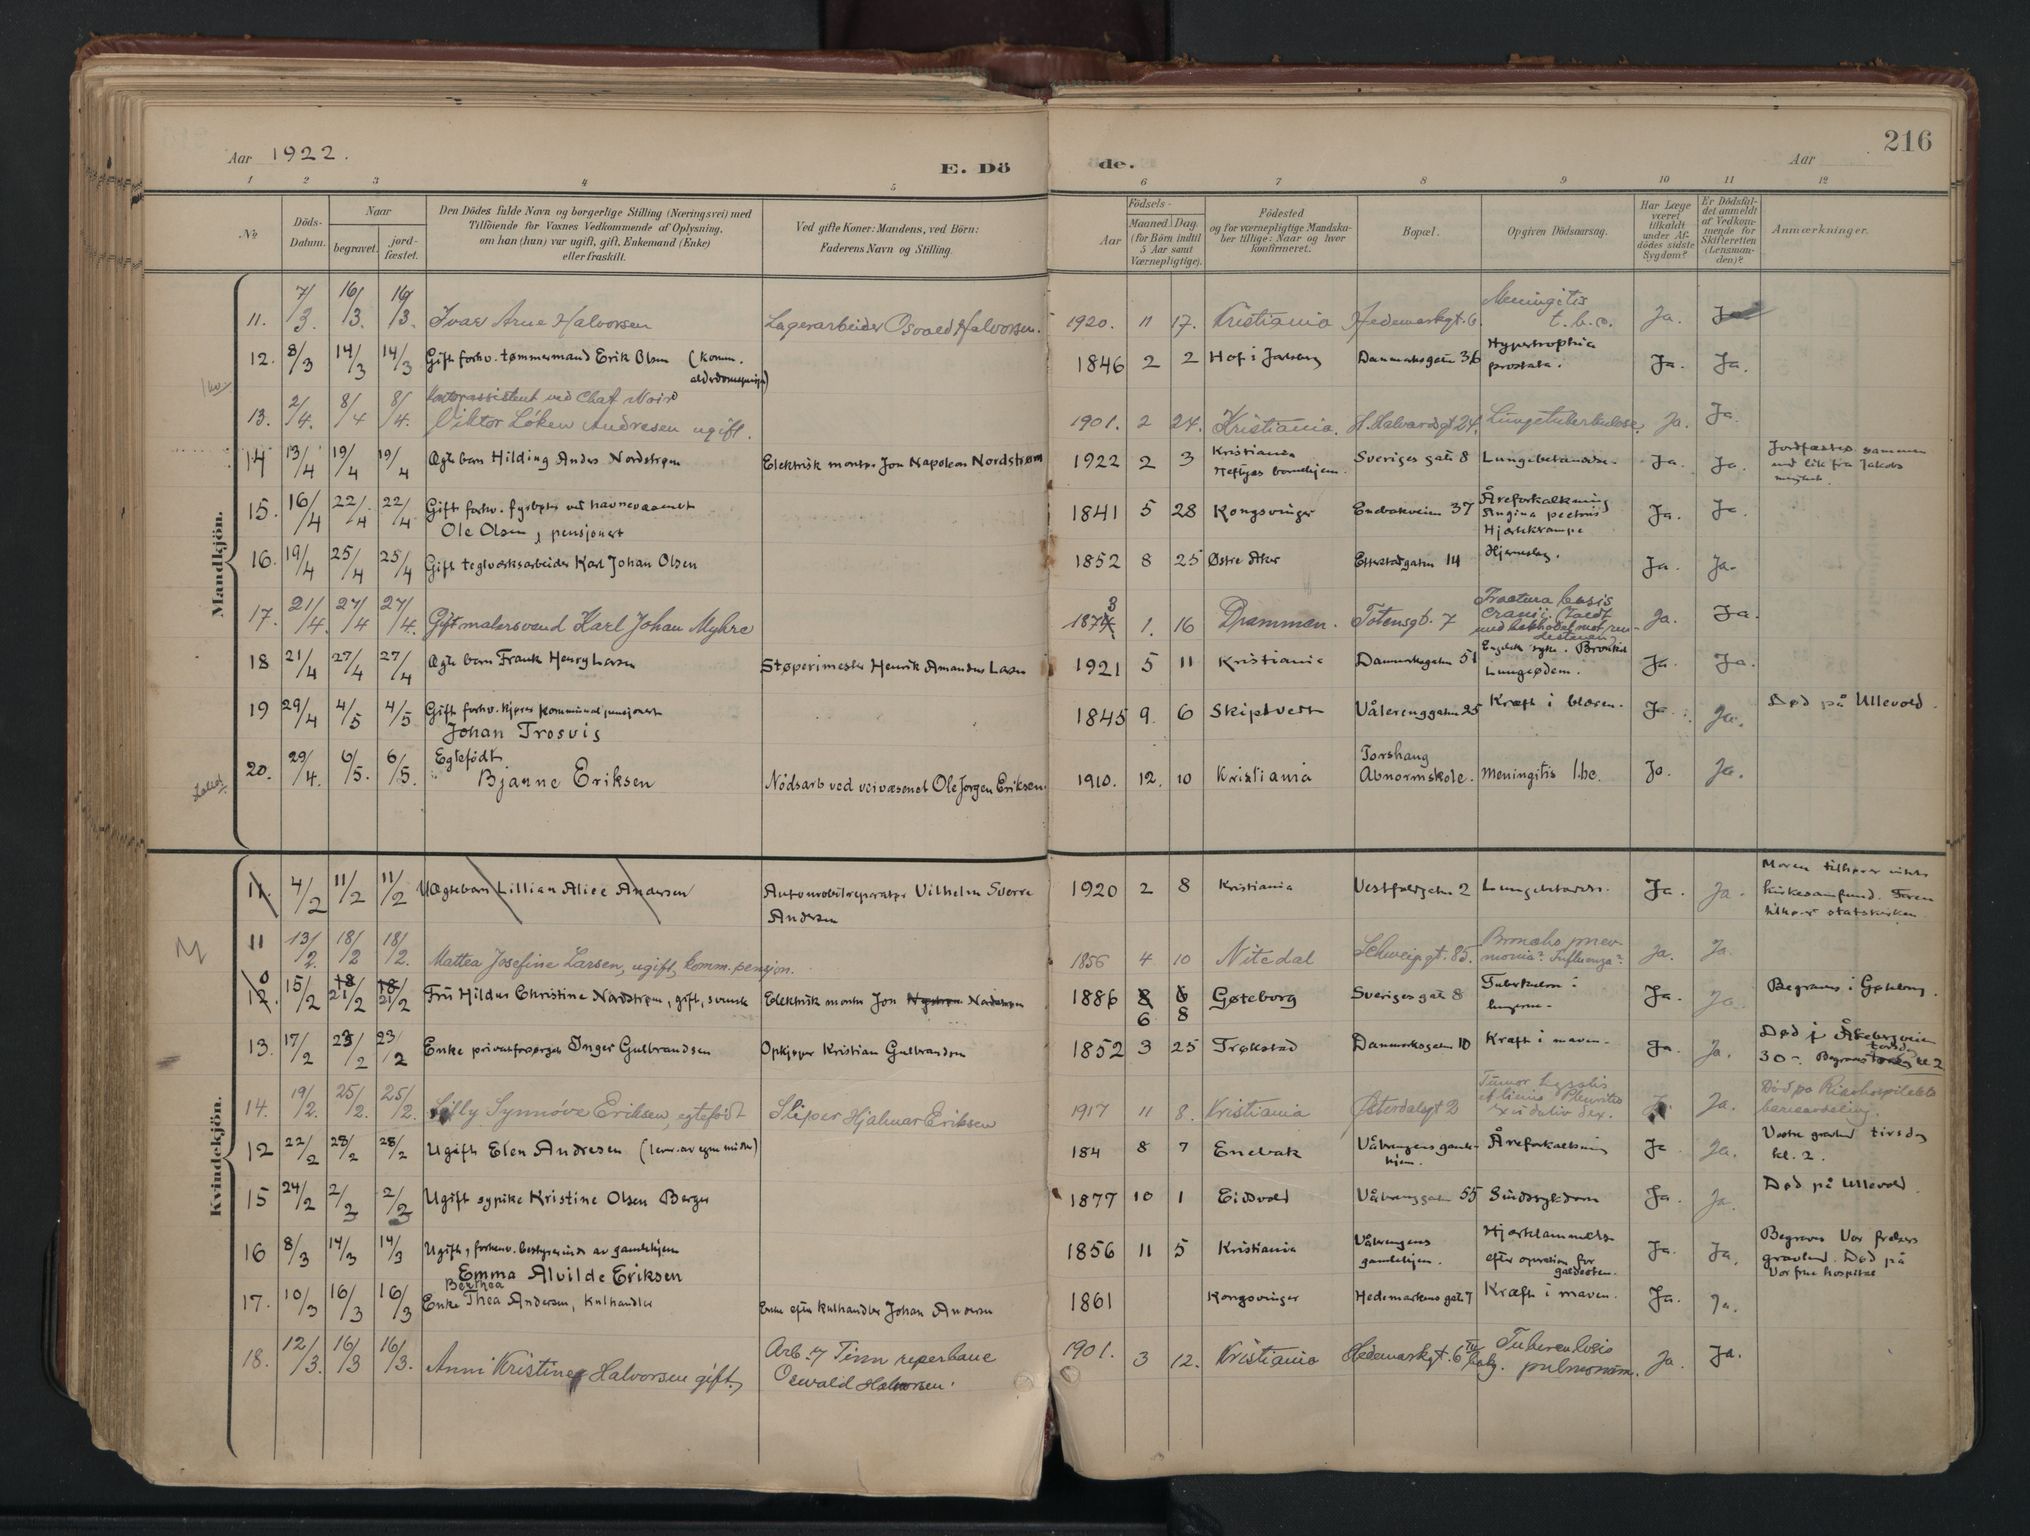 Aar 1922.
E. Dö
de.
Aar
216
1 2 3 4 5 6 7 8 9 10 11 12
№
Döds-Datum.
Naar
begravet.
jord-fæstet.
Den Dödes fulde Navn og borgerlige Stilling (Næringsvei) med
Tilföiende for Voxnes Vedkommende af Oplysning,
om han (hun) var ugift, gift, Enkemand (Enke)
eller fraskilt.
Ved gifte Koner: Mandens, ved Börn:
Faderens Navn og Stilling.
Födsels-
Aar
Maaned Dag.
(for Börn indtil
5 Aar samt
Værnepligtige).
Födested
og for værnepligtige Mandska-
ber tillige: Naar og hvor
konfirmeret.
Bopæl.
Opgiven Dödsaarsag.
Har Læge
været
tilkaldt
under Af-
dödes sidste
Sygdom?
Er Dödsfal-
det anmeldt
af Vedkom-
mende for
Skifteretten
(Lensman-
den)?
Anmærkninger.
Mandkjön.
11. 7/3. 16/3. 16/3. Ivar Arne Halvorsen Lagerarbeider Osvald Halvorsen. 1920. 11 17. Kristiania Hedemarksgt. 6. Meningitis t.b.c. Ja. Ja
12. 8/3 14/3 14/3 Gift forhv. tømmermand Erik Olsen (komm. 1846 2 2 Hof i Jarlsberg Danmarksgaten 36 Hypertrophia prostata. Ja. Ja.
13. 2/4. 8/4 8/4. Kontorassistent ved Chat Noir
Viktor Løken Andresen ugift. 1901. 2 24. Kristiania. St. Halvardsgt 24. Lungetuberkulose. Ja. Ja.
14 13/4 19/4 19/4 Ægte barn Hilding Anders Nordstrøm Elektrisk montør Jon Napoleon Nordstrøm 1922 2 3 Kristiania Sveriges gate 8 Lungebetændelse. Ja. Ja. Jordfæstes sammen
med lik fra Jakobs
15. 16/4 22/4 22/4 Gift forhv. fyrbøter ved havnevæsenet
Ole Olsen, pensjonert 1841 5 28 Kongsvinger Enebakveien 37 Åreforkalkning
Angina pectoris
Hjertekrampe Ja. Ja.
16. 19/4 25/4 25/4 Gift teglverksarbeider Karl Johan Olsen 1852 8 25 Østre Aker Etterstadgaten 14 Hjerneslag. Ja. Ja.
17. 21/4. 27/4 27/4. Gift malersvend Karl Johan Myhre 1873 1. 16 Drammen. Totensgt. 7 Fractura basis
cranii: Ja. Ja.
18 21/4 27/4 27/4 Ægte barn Frank Henry Larsen Støperimester Henrik Amandus Larsen 1921 5 11 Kristiania Danmarksgaten 51 Engelsk syke. Bronkit
Lungeødem. Ja. Ja.
19 29/4 4/5 4/5 Gift forhv. kjører kommunal pensjonert
Johan Trosvis 1845 9. 6 Skiptvedt Vålerenggaten 25 Kræft i blæren. Ja. Ja. Død på Ullevold.
20. 29/4. 6/5. 6/5. Egtefödt
Bjarne Eriksen Nödsarb ved veivæsenet Ole Jorgen Eriksen. 1910. 12. 10 Kristiania Torshaug
Abnormskole. Meningitis t.bc. Ja. Ja.
Kvindekjön.
11. 4/2 11/2 11/2 Uægtebarn Lillian Alice Andersen Automobilreparatør Vilhelm Sverre
Andersen 1920 2 8 Kristiania Vestfoldgaten 2 Ja. Ja. Moren tilhører intet
kirkesamfund. Faren
tilhører statskirken
11 13/2. 18/2 18/2 Mattea Josefine Larsen, ugift, komm. pensjon. 1856 4 10 Nitedal Schweigt. 85. Broncho pnev-
monia? Influenza? Ja. Ja.
12. 15/2 21/2 21/2 Fru Hildur Christine Nordstrøm, gift, svensk Elektrisk montør Jon Nordstrøm 1886 6 8 Gøteborg Sveriges gate 8 Tuberkulose i
lungerne. Ja. Ja. Begraves i Gøteborg.
13. 17/2 23/2 23/2 Enke privatforsørget Inger Gulbrandsen Opkjøper Kristian Gulbrandsen 1852 3 25 Trøkstad Danmarksgaten 10 Kræft i maven. Ja. Ja. Død i Åkebergveien
30. Begraves torsdag kl 2
14. 19/2. 25/2. 25/2. Lilly Synnöve Eriksen, egtefödt Sliper Hjalmar Eriksen 1917 11 8. Kristiania Østerdalsgt 2 Tumor
et lienis Pleuritis
exudativ dex. Ja. Død på Rikshospitalets
barneavdeling.
12 22/2 28/2 28/2 Ugift Elen Andresen (lever av egne midler) 184 8 7 Enebak Vålerengens gamle-
hjem. Åreforkalkning Ja Ja. Vestre gravlund tirsdag
kl. 2.
15 24/2 2/3 2/3 Ugift sypike Kristine Olsen Berger 1877 10 1 Eidsvold Vålerenggaten 55 Sindssygdom Ja. Ja. Død på Ullevold
16 8/3 14/3 14/3 Ugift, forhenv. bestyrerinde av gamlehjem
Emma Alvilde Eriksen 1856 11 5 Kristiania Vålerengens
gamlehjem. Hjertelammelse
efter operation for
galdesten. Ja. Ja. Begraves Vor frelsers
gravlund. Død på
Vor frue hospital
17. 10/3 16/3 16/3 Berthea
Enke Thea Andersen, kulhandler Enke efter kulhandler Johan Andersen 1861 Kongsvinger Hedemarkens gate 7 Kræft i maven. Ja. Ja.
18. 12/3. 16/3 16/3. Anni Kristine Halvorsen gift. Arb. v Tinn reperbane
Oswald Halvorsen. 1901. 3 12. Kristiania Hedemarksgt. 6 III Tuberculosis
pulmonum. Ja. Ja.